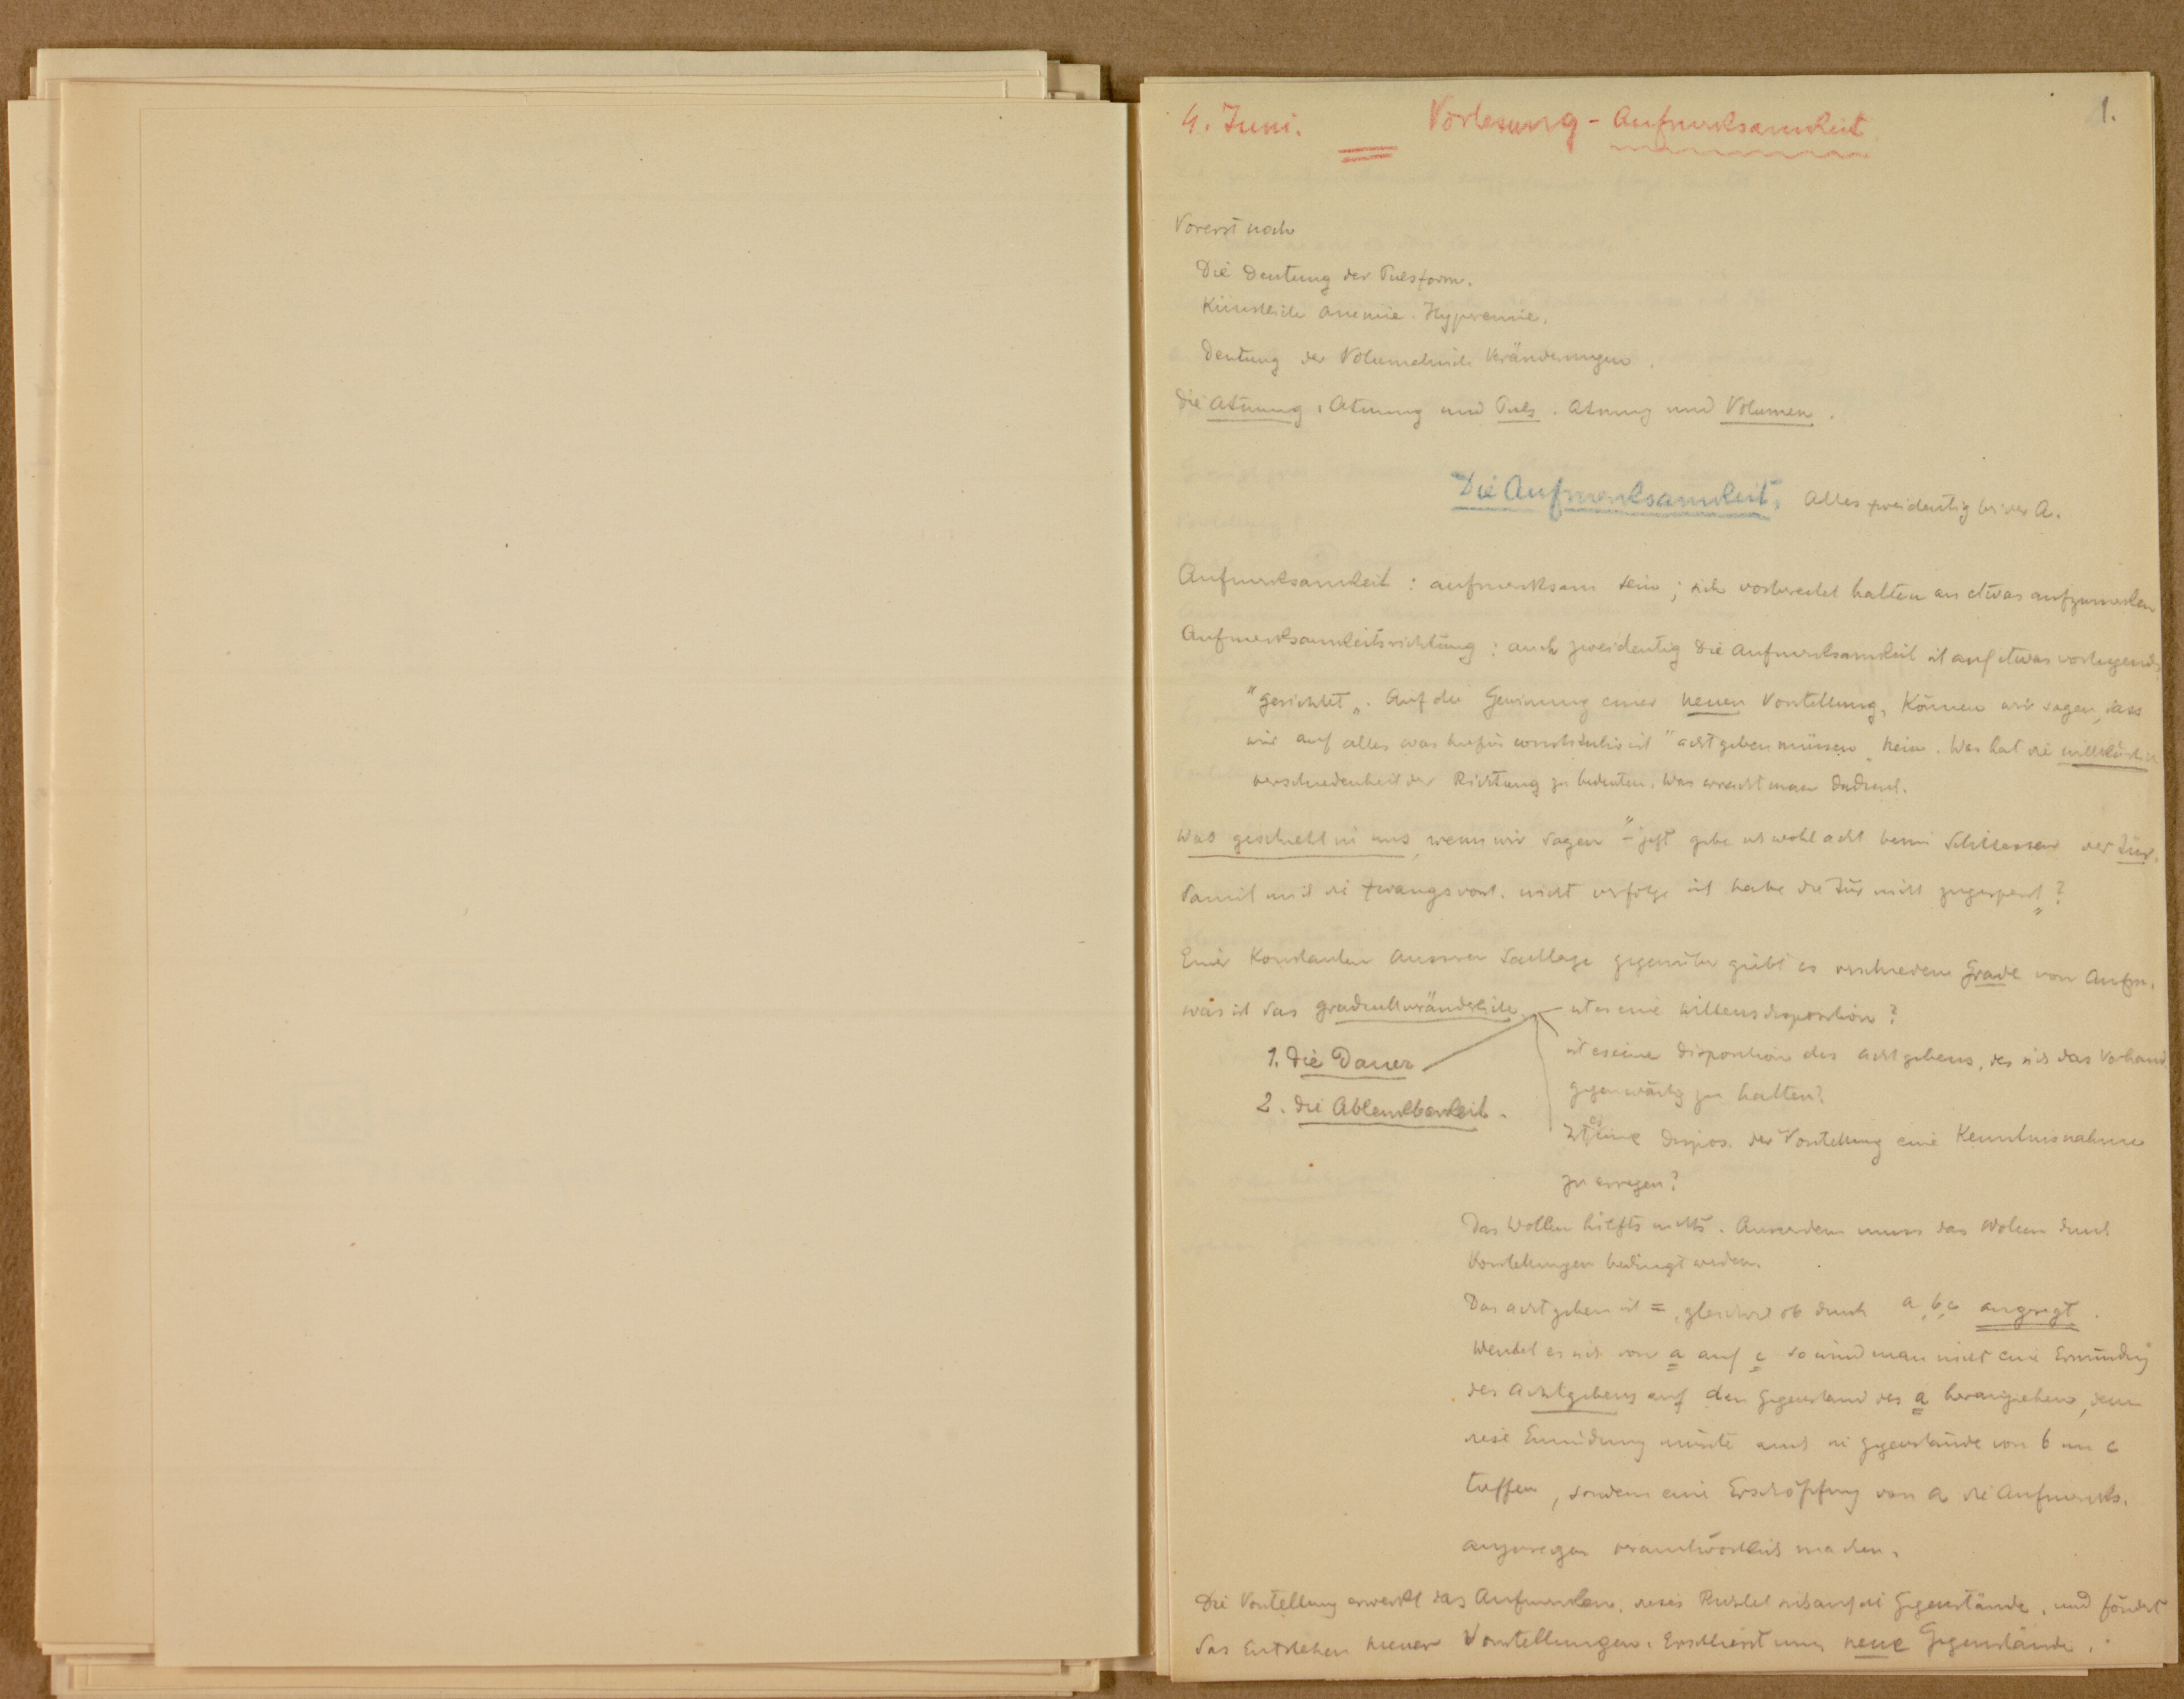 4. Juni. Vorlesung - Aufmerksamkeit 1.
Vorerst noch
Die Deutung der Pulsform.
Künstliche Anemie. Hyperemie.
Deutung der Volumetrisch Veränderungen.
Die Atmung, Atmung und Puls. Atmung und Volumen.
Die Aufmerksamkeit, Alles zweideutig bei der A.
Aufmerksamkeit: aufmerksam sein; sich vorbereitet halten an etwas aufzumerken
Aufmerksamkeitsrichtung: auch zweideutig Die Aufmerksamkeit ist auf etwas vorliegendes
"gerichtet". Auf die Gewinnung einer neuen Vorstellung. Können wir sagen, dass
wir auf alles was hiefür constitutiv ist "acht geben müssen" Nein. Was hat die willkürliche
Verschiedenheit der Richtung zu bedeuten. Was erreicht man dadurch.
Was geschieht in uns, wenn wir sagen "- jetzt gebe ich wohl acht beim Schliessen der Tür.
Damit mich die Zwangsvorst. nicht verfolge ich habe die Tür nicht zugesperrt"?
Einer Konstanten äusseren Sachlage gegenüber giebt es verschiedene Grade von Aufm.
was ist das graduell veränderliche. ist es eine Willensdisposition?
1. Die Dauer
ist es eine Disposition des acht gebens, des sich das Vorhand
2. die Ablenkbarkeit.
gegenwärtig zu halten?
Ist es eine Dispos. der Vorstellung eine Kenntnisnahme
zu erregen?
Das Wollen hilft nichts. Ausserdem muss das Wollen durch
Vorstellungen bedingt werden.
Das achtgeben ist =, gleichviel ob durch a, b, c angeregt.
Wendet es sich von a auf c so wird man nicht eine Ermüdung
des Achtgebens auf den Gegenstand des a heranziehen, denn
diese Ermüdung müsste auch die Gegenstände von b und c
treffen, sondern eine Erschöpfung von a die Aufmerks.
anzuregen verantwortlich machen.
Die Vorstellung erweckt das Aufmerken, dieses Richtet sich auf die Gegenstände, und fördert
das Entstehen neuer Vorstellungen. Erschliesst uns neue Gegenstände.